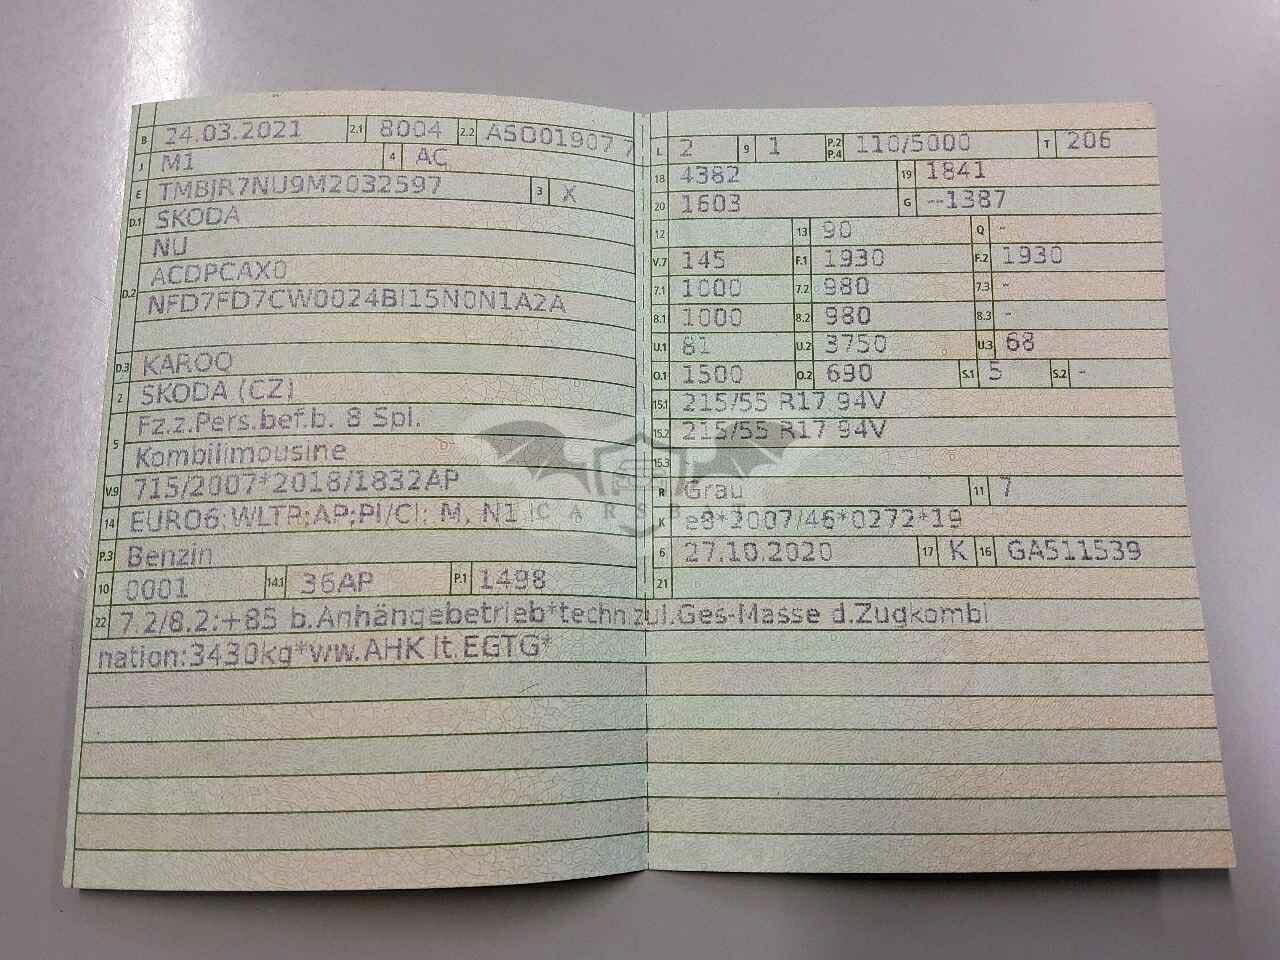 B 24.03.2021 2.1 8004 2.2 ASO01907 7
J M1 4 AC
E TMBJR7NU9M2032597 3 X
D.1 SKODA
NU
D.2 ACDPCAX0
NFD7FD7CW0024BI15N0N1A2A
D.3 KAROQ
2 SKODA (CZ)
5 Fz.z.Pers.bef.b. 8 Spl.
Kombilimousine
V.9 715/2007*2018/1832AP
14 EURO6;WLTP;AP;PI/CI: M, N1 I
P.3 Benzin
10 0001 14.1 36AP P.1 1498
L 2 9 1 P.2 P.4 110/5000 T 206
18 4382 19 1841
20 1603 G --1387
12 13 90 Q -
V.7 145 F.1 1930 F.2 1930
7.1 1000 7.2 980 7.3 -
8.1 1000 8.2 980 8.3 -
U.1 81 U.2 3750 U.3 68
O.1 1500 O.2 690 S.1 5 S.2 -
15.1 215/55 R17 94V
15.2 215/55 R17 94V
15.3
R Grau 11 7
CARSB
K e8*2007/46*0272*19
6 27.10.2020 17 K 16 GA511539
21
22 7.2/8.2:+85 b.Anhängebetrieb*techn.zul.Ges-Masse d.Zugkombi
nation:3430kg*ww.AHK lt.EGTG*